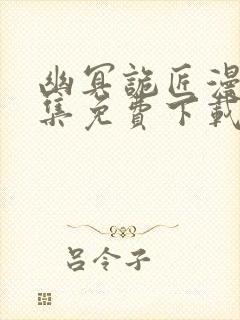 幽冥詭匠漫
集免費下載
呂令子